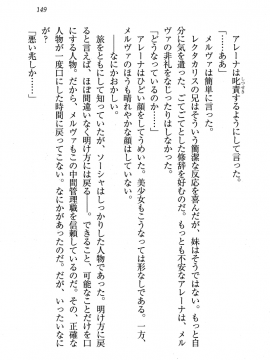 149
アレーナは叱責するように言った。
「……ああ」
メルヴァは簡単に言った。
レクタカリス兄はそういう簡潔な反応を喜んだが、妹はもっと自
分に気を遣った、ごてごてとした修辞を好むのだ。もっとも、メル
ヴァの兄をなじったりはしなかった。
「どうなっているのか……」
アレーナはひどい顔をしていた。美少女もこうなっては形なしである。一方、
メルヴァのほうも晴れやかな顔はしていない。
――なにかおかしい。
旅をともにして知っていたが、ソーシャはしっかりした人物であった。明け方に戻
ると言えば、ほぼ間違いなく明け方には戻る――できること、可能なことだけを口
にする人物だ。メルヴァもこの中間管理職を信頼しているのだ。その、正確な
人物が一度口にした時間に戻ってこない。なにかがあったのだ。だが、いったいなに
が？
「悪い兆しか……」